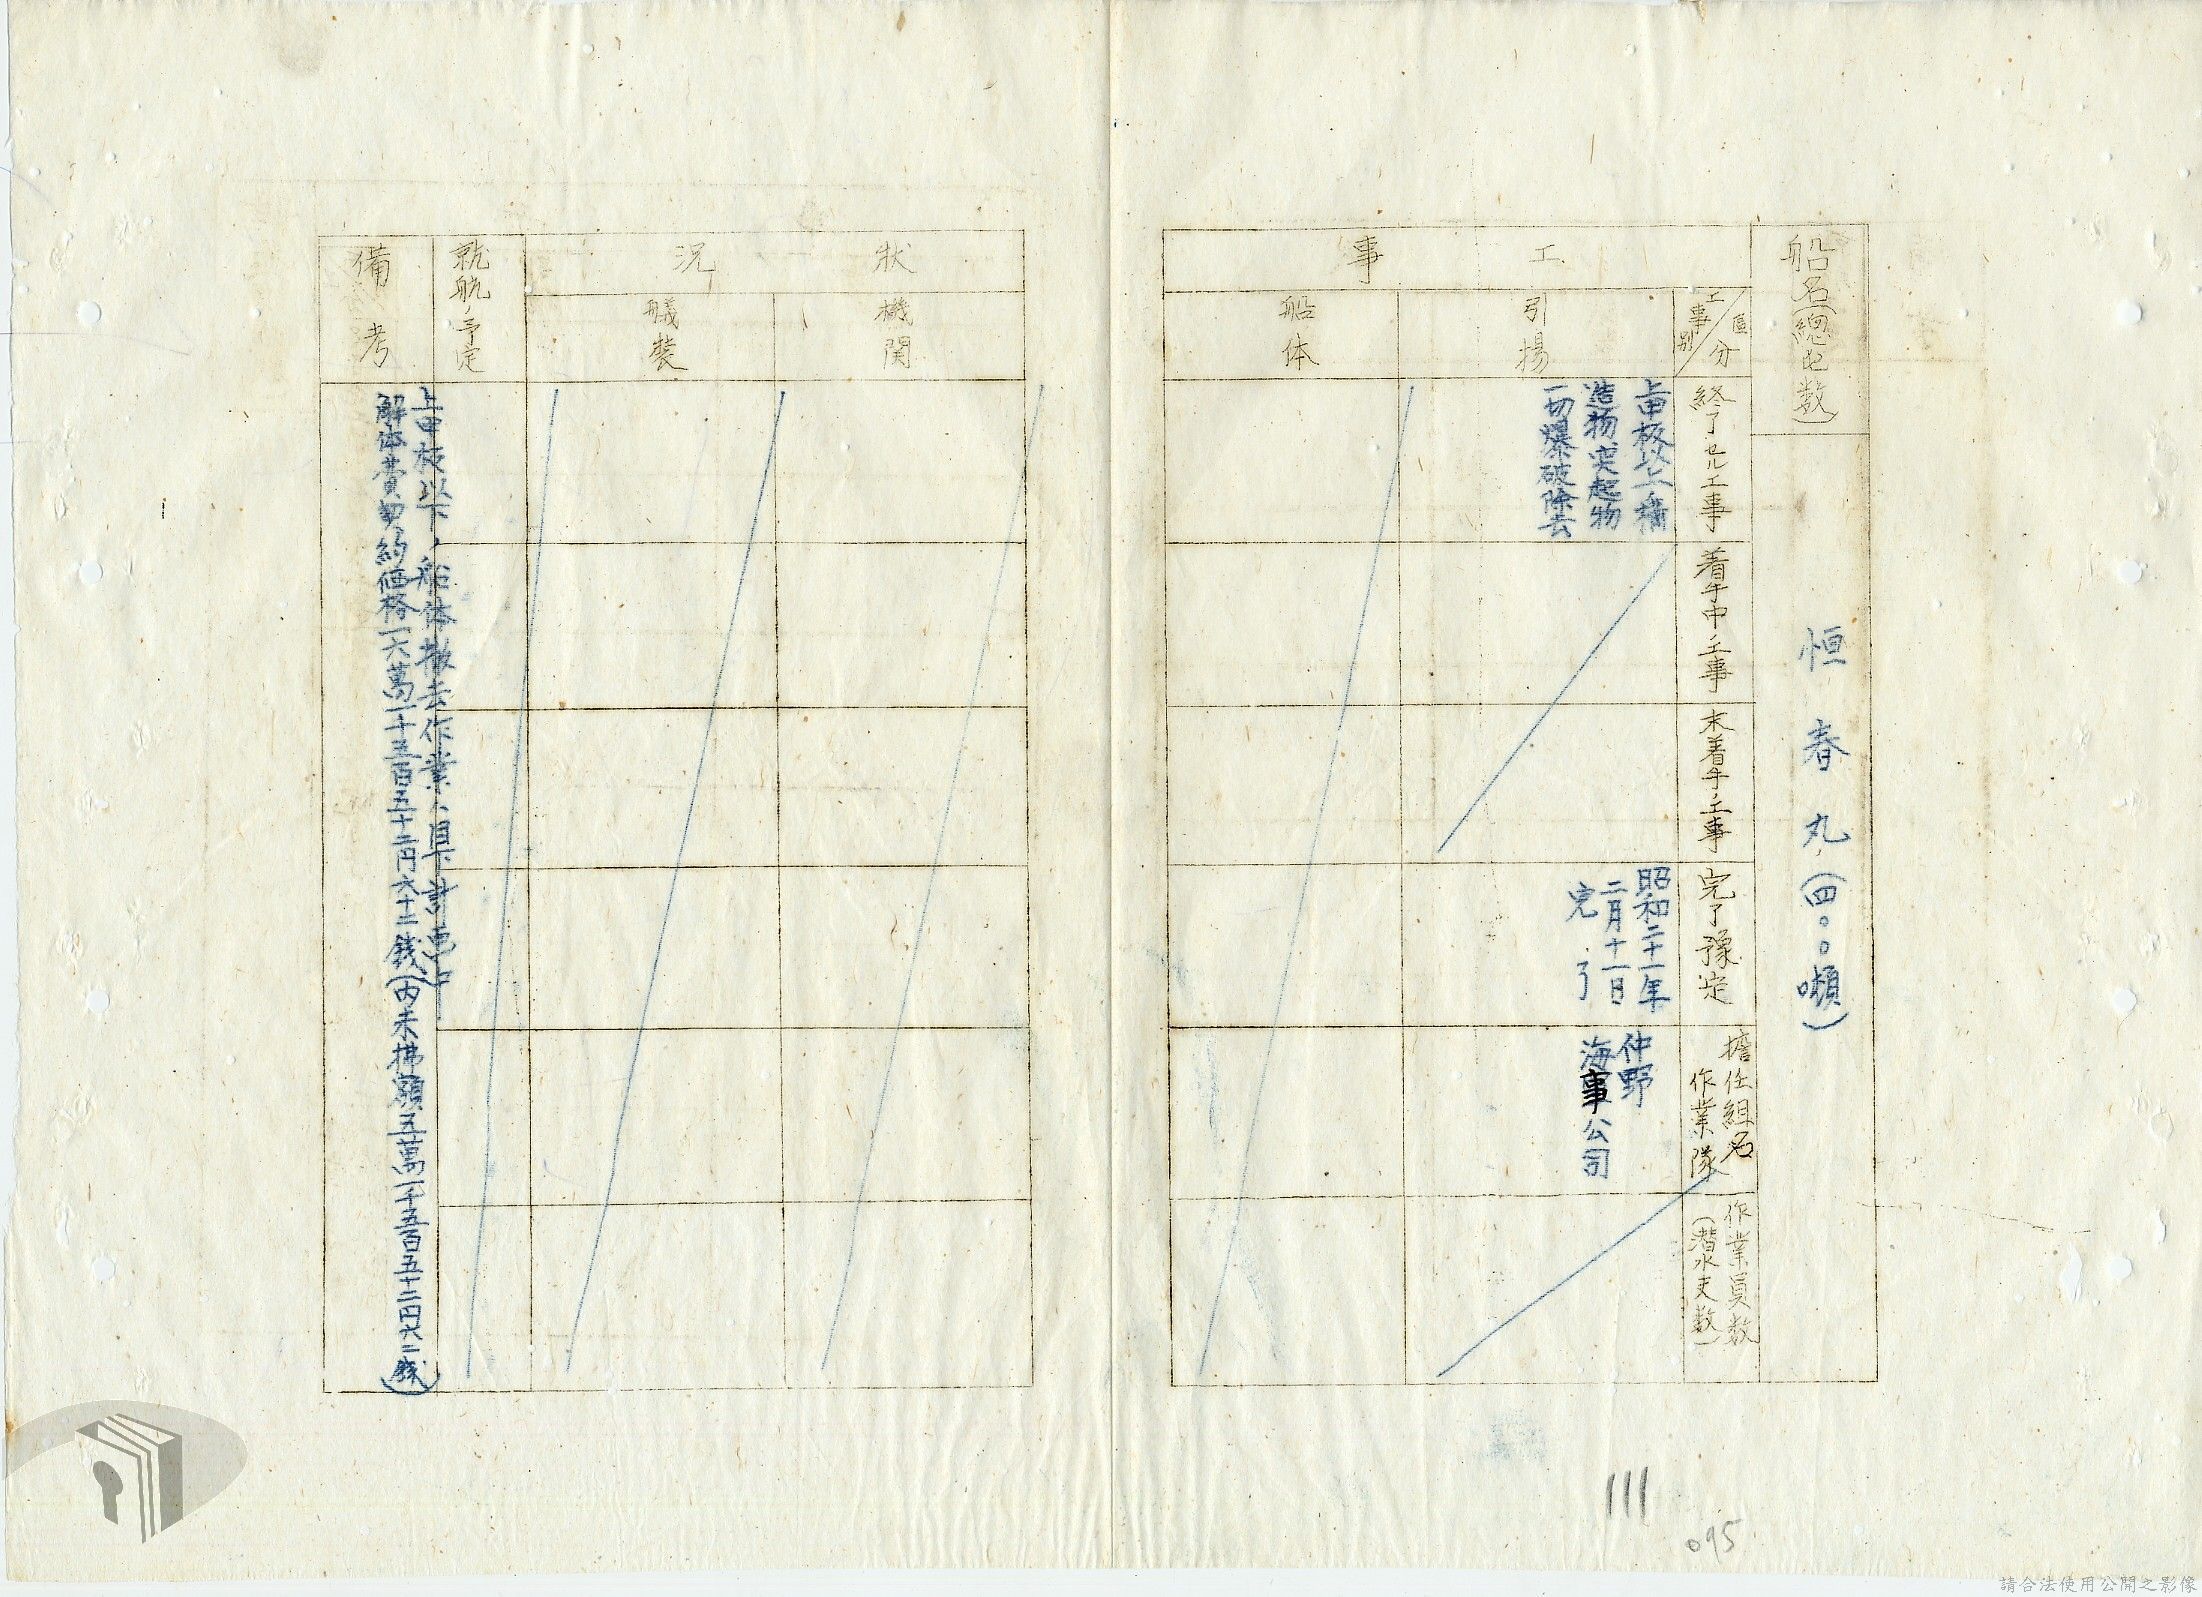 船名(總屯数)
恒春丸(四〇〇噸)
工事
区分
工事別
終了セル工事
着手中ノ工事
未着手ノ工事
完了豫定
擔任組名
作業隊
作業員数
(潜水夫数)
引揚
上甲板以上構
造物、突起物
一切爆破除去
昭和二十一年
二月十一日
完了
仲野
海事公司
船体
状況
機関
艤装
就航ノ予定
備考
上甲板以下ノ船体撤去作業ハ目下計画中
解体費契約価格一六萬一千五百五十二円六十二銭(内未拂額五萬一千五百五十二円六二銭)
111
095
請合法使用公開之影像